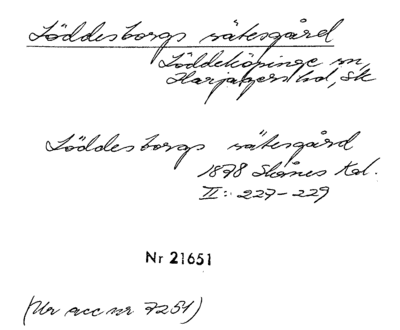 Löddesborgs sätesgård
Löddeköpinge sn,
Harjagers hd, Sk
Löddesborgs sätesgård
1878 Skånes Kal.
II: 227-229
Nr 21651
(Ur acc nr 7251)